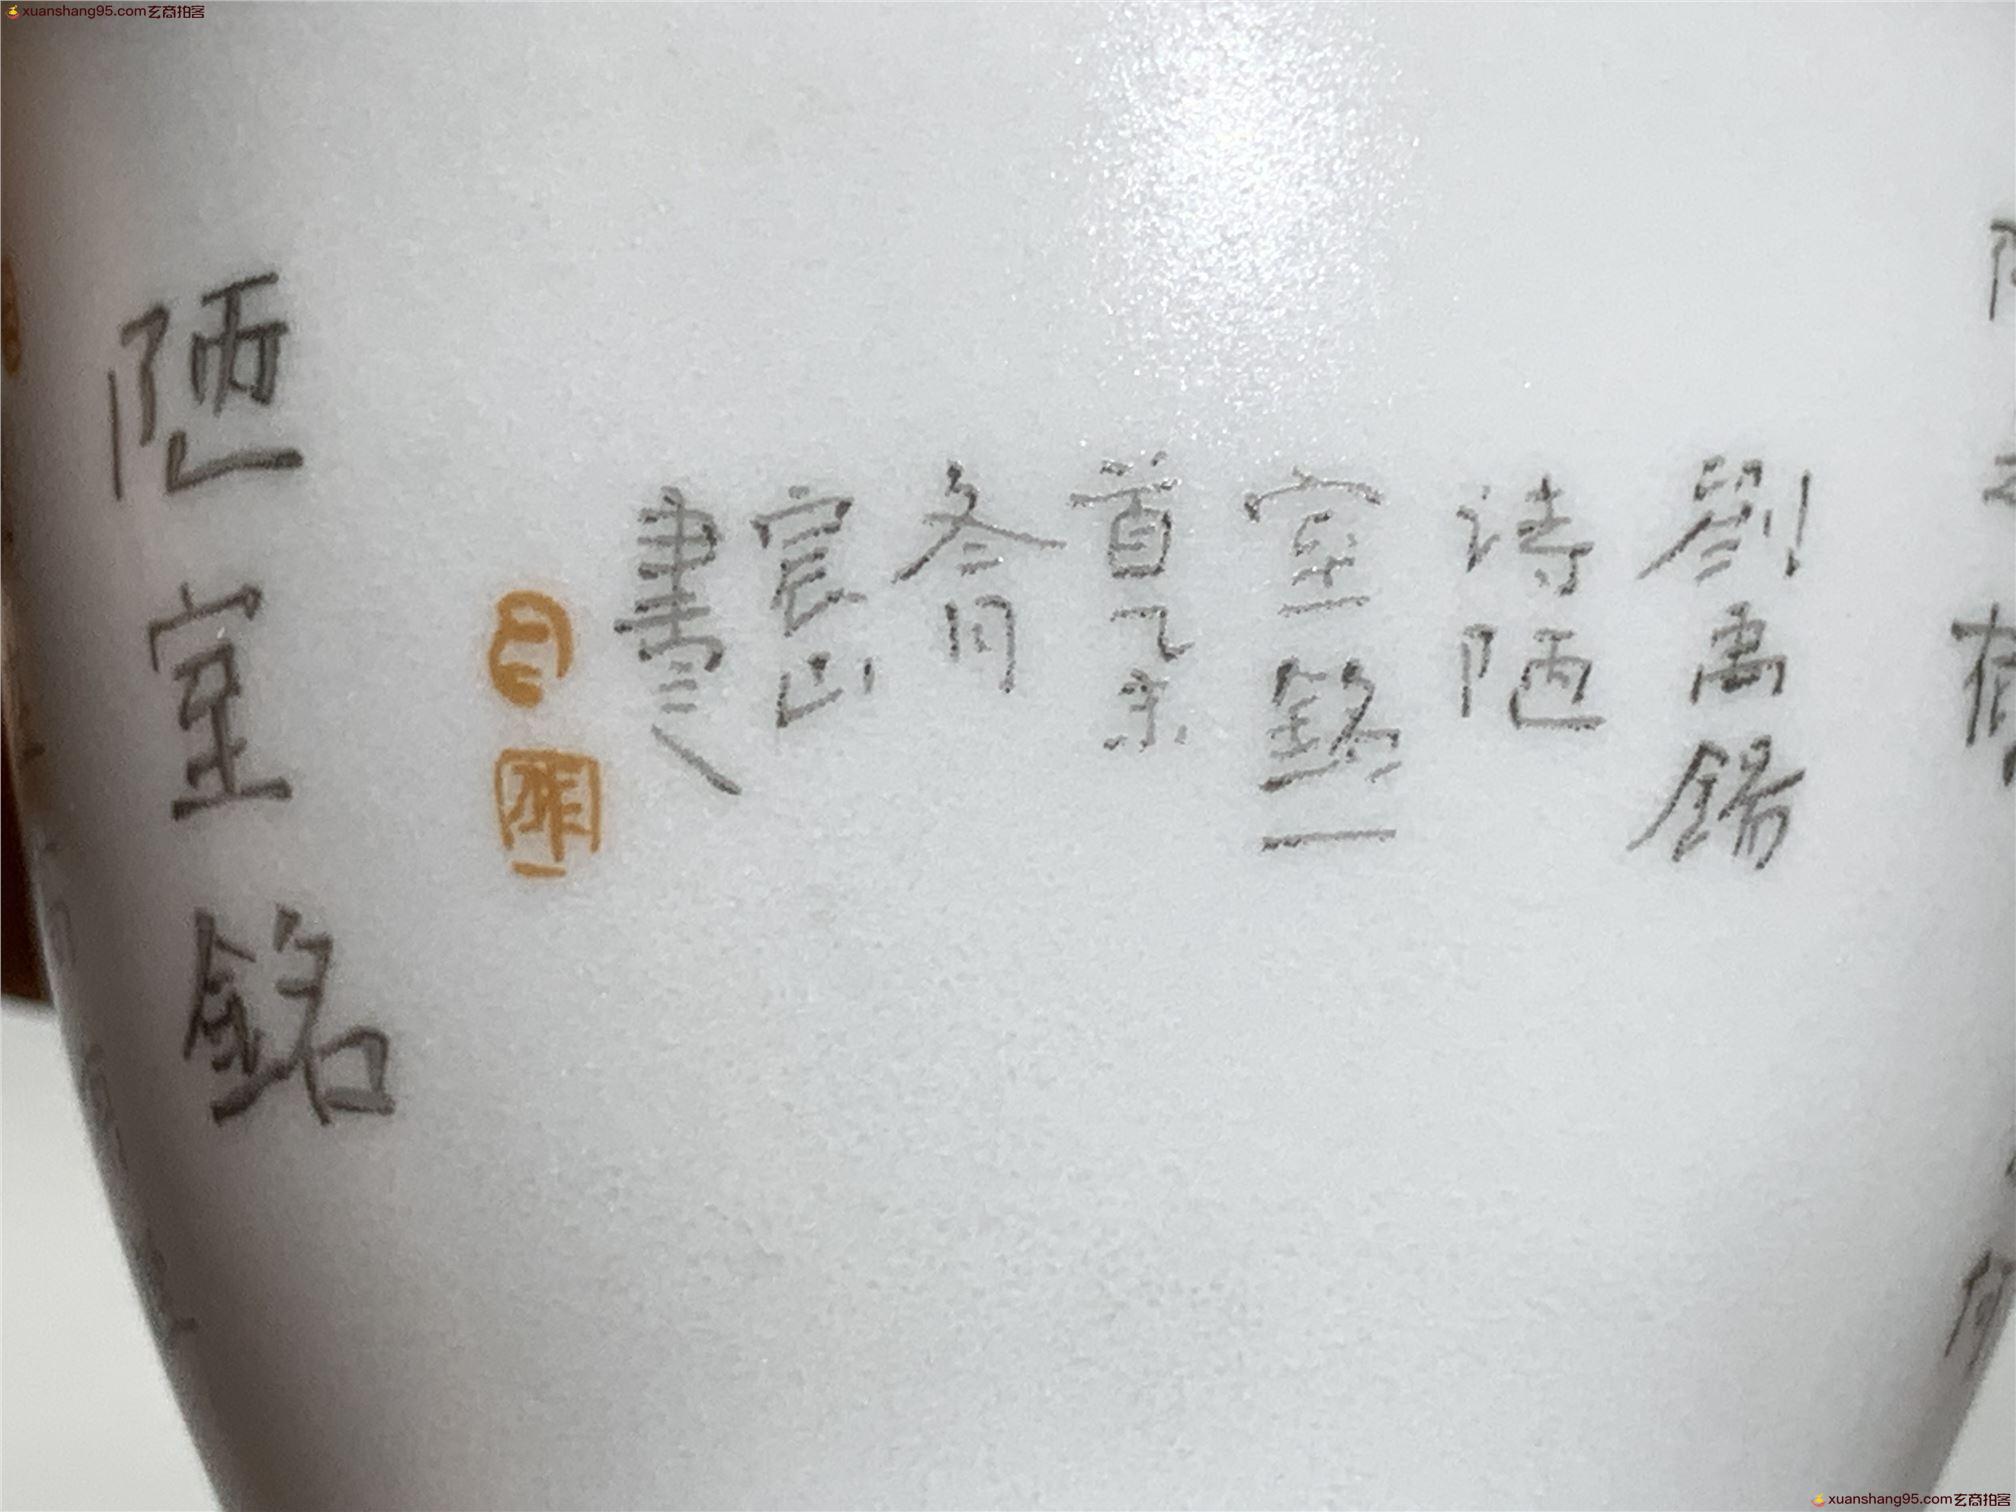 xuanshang95.com玄商拍客
劉禹錫
诗陋
室銘一
首乙未
冬月
宸山
書之
陋室銘
xuanshang95.com玄商拍客